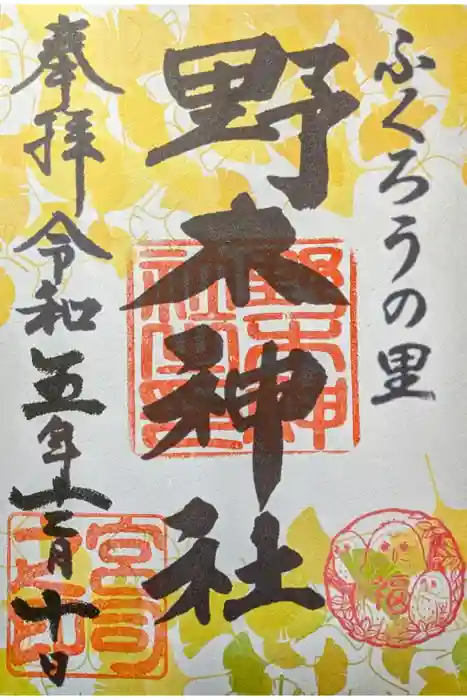 ふくろうの里
野木神社
奉拝 令和五年十二月十日
野木神社之印
宮司之印
福